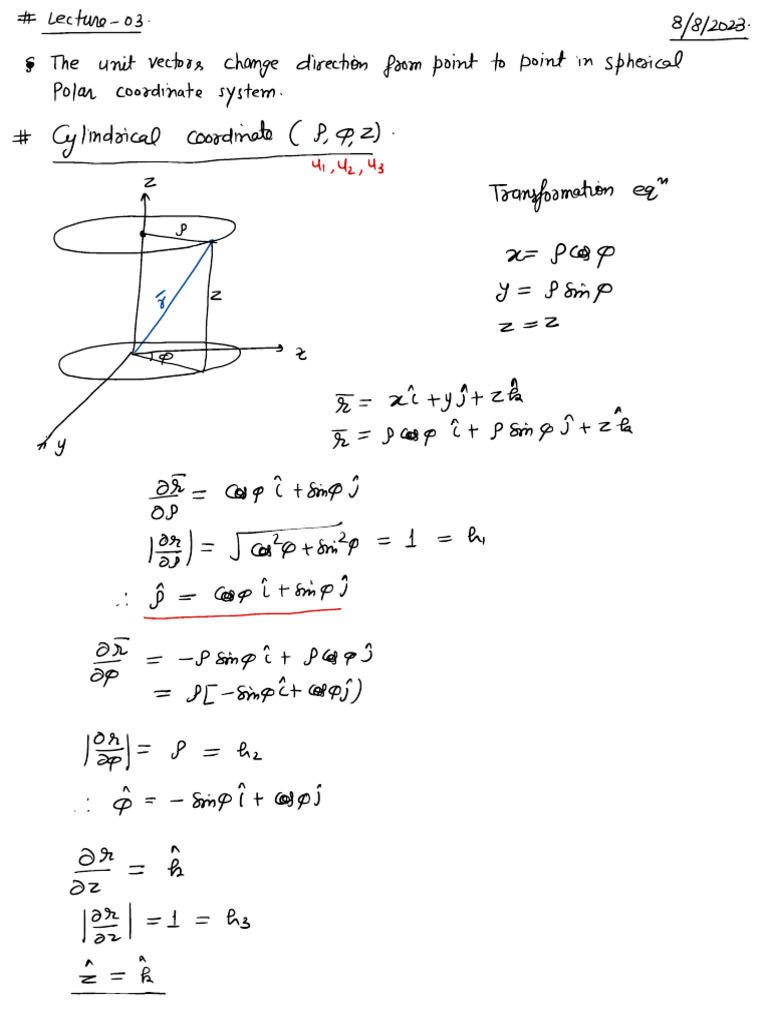 # Lecture-03.
8/8/2023.
§ The unit vectors change direction from point to point in spherical
Polar coordinate system.
# Cylindrical coordinate (ρ, φ, z).
u₁, u₂, u₃
z
Transformation eqⁿ
ρ
x = ρ cos φ
y = ρ sin φ
z = z
r̄
z
φ
x
y
r̄ = x î + y ĵ + z k̂
r̄ = ρ cos φ î + ρ sin φ ĵ + z k̂
∂r̄/∂ρ = cos φ î + sin φ ĵ
|∂r/∂ρ| = √(cos²φ + sin²φ) = 1 = h₁
∴ ρ̂ = cos φ î + sin φ ĵ
∂r̄/∂φ = -ρ sin φ î + ρ cos φ ĵ
= ρ[-sin φ î + cos φ ĵ)
|∂r/∂φ| = ρ = h₂
∴ φ̂ = - sin φ î + cos φ j
∂r/∂z = k̂
|∂r/∂z| = 1 = h₃
ẑ = k̂